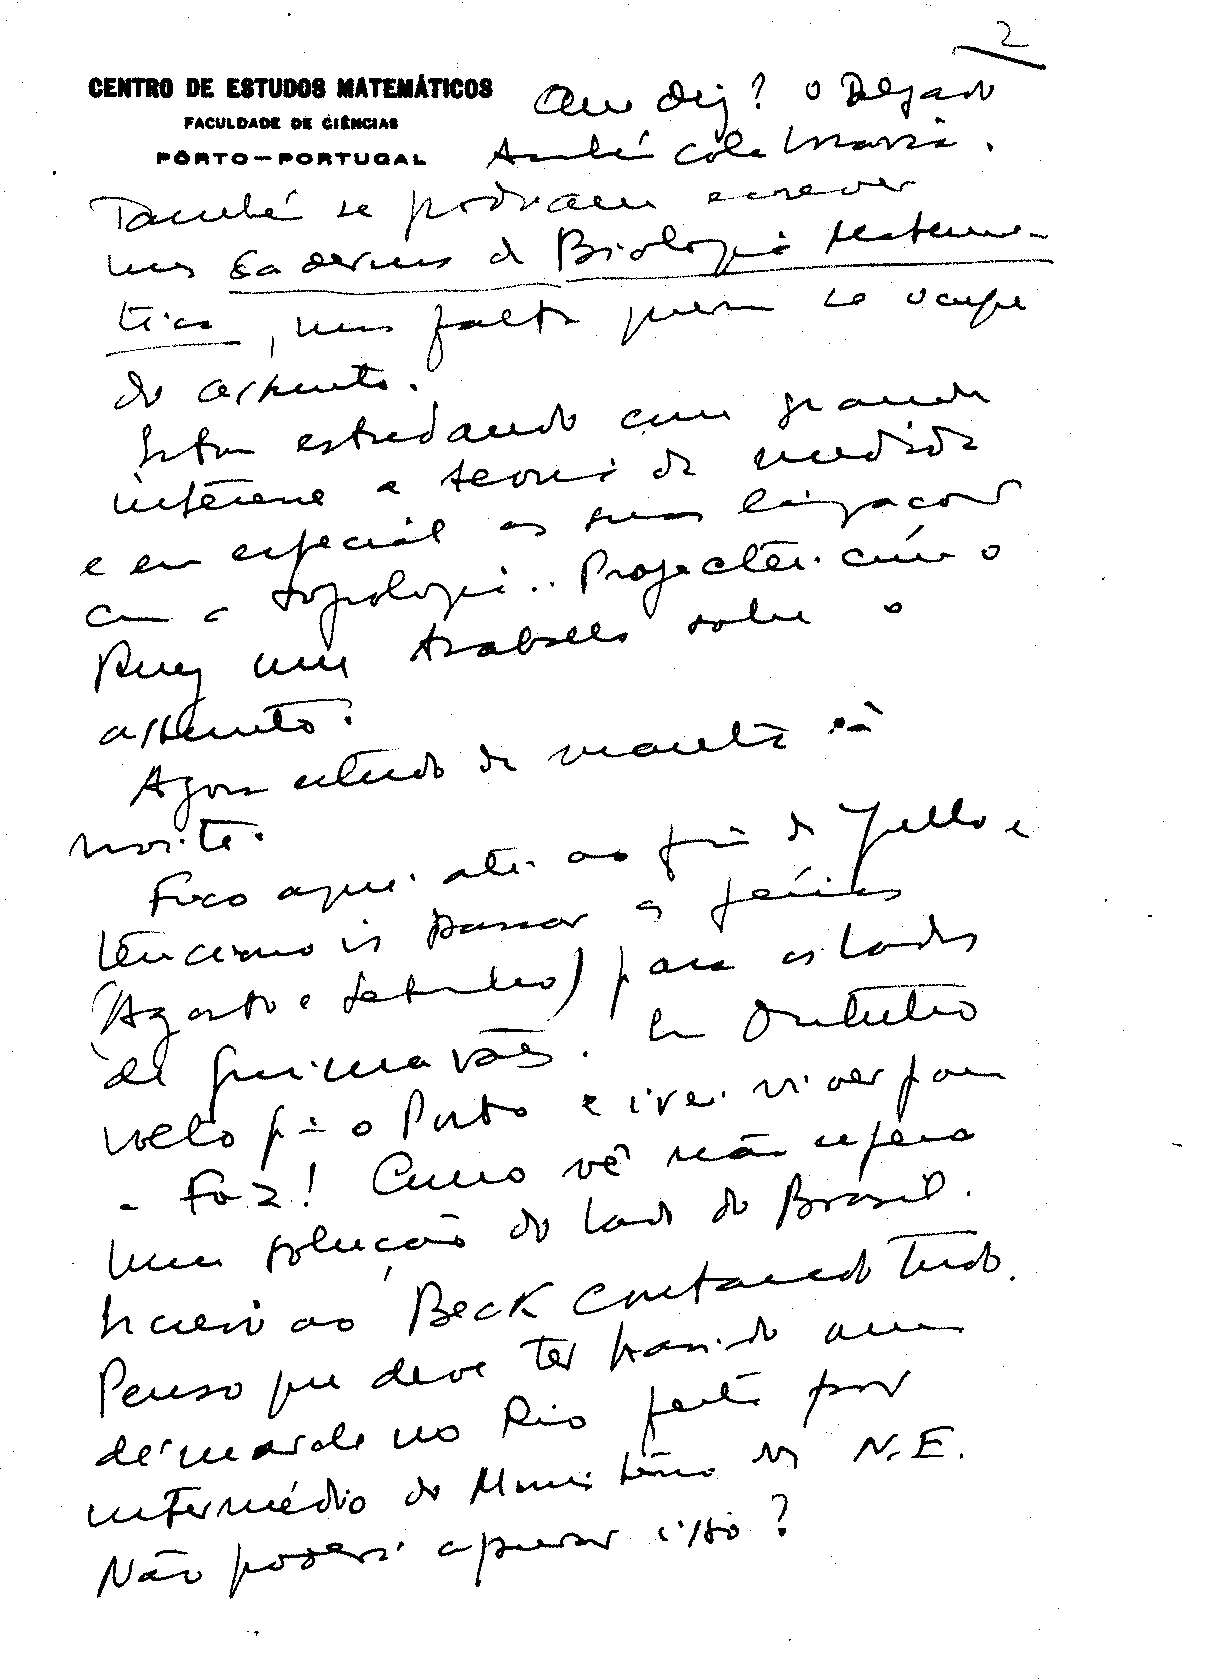 2
CENTRO DE ESTUDOS MATEMÁTICOS
FACULDADE DE CIÊNCIAS
PÔRTO—PORTUGAL
Que diz? O Delgado
também colaboraria.
Também se podiam escrever
uns Cadernos de Biologia Matemá-
tica, mas falta quem se ocupe
do assunto.
Estou estudando com grande
interesse a teoria da medida
e em especial as suas ligações
com a topologia. Projectei com o
Ruy um trabalho sobre o
assunto.
Agora estudo de manhã à
noite.
Fico aqui até ao fim de Julho e
tenciono ir passar as férias
(Agosto e Setembro) para os lados
de Guimarães. Em Outubro
volto p.ª o Porto e irei viver para
a Foz! Como vê não espero
uma solução do lado do Brasil.
Escrevi ao Beck contando tudo.
Penso que deve ter havido uma
démarche no Rio feita por
intermédio do Ministério dos N.E.
Não poderá apurar isso?